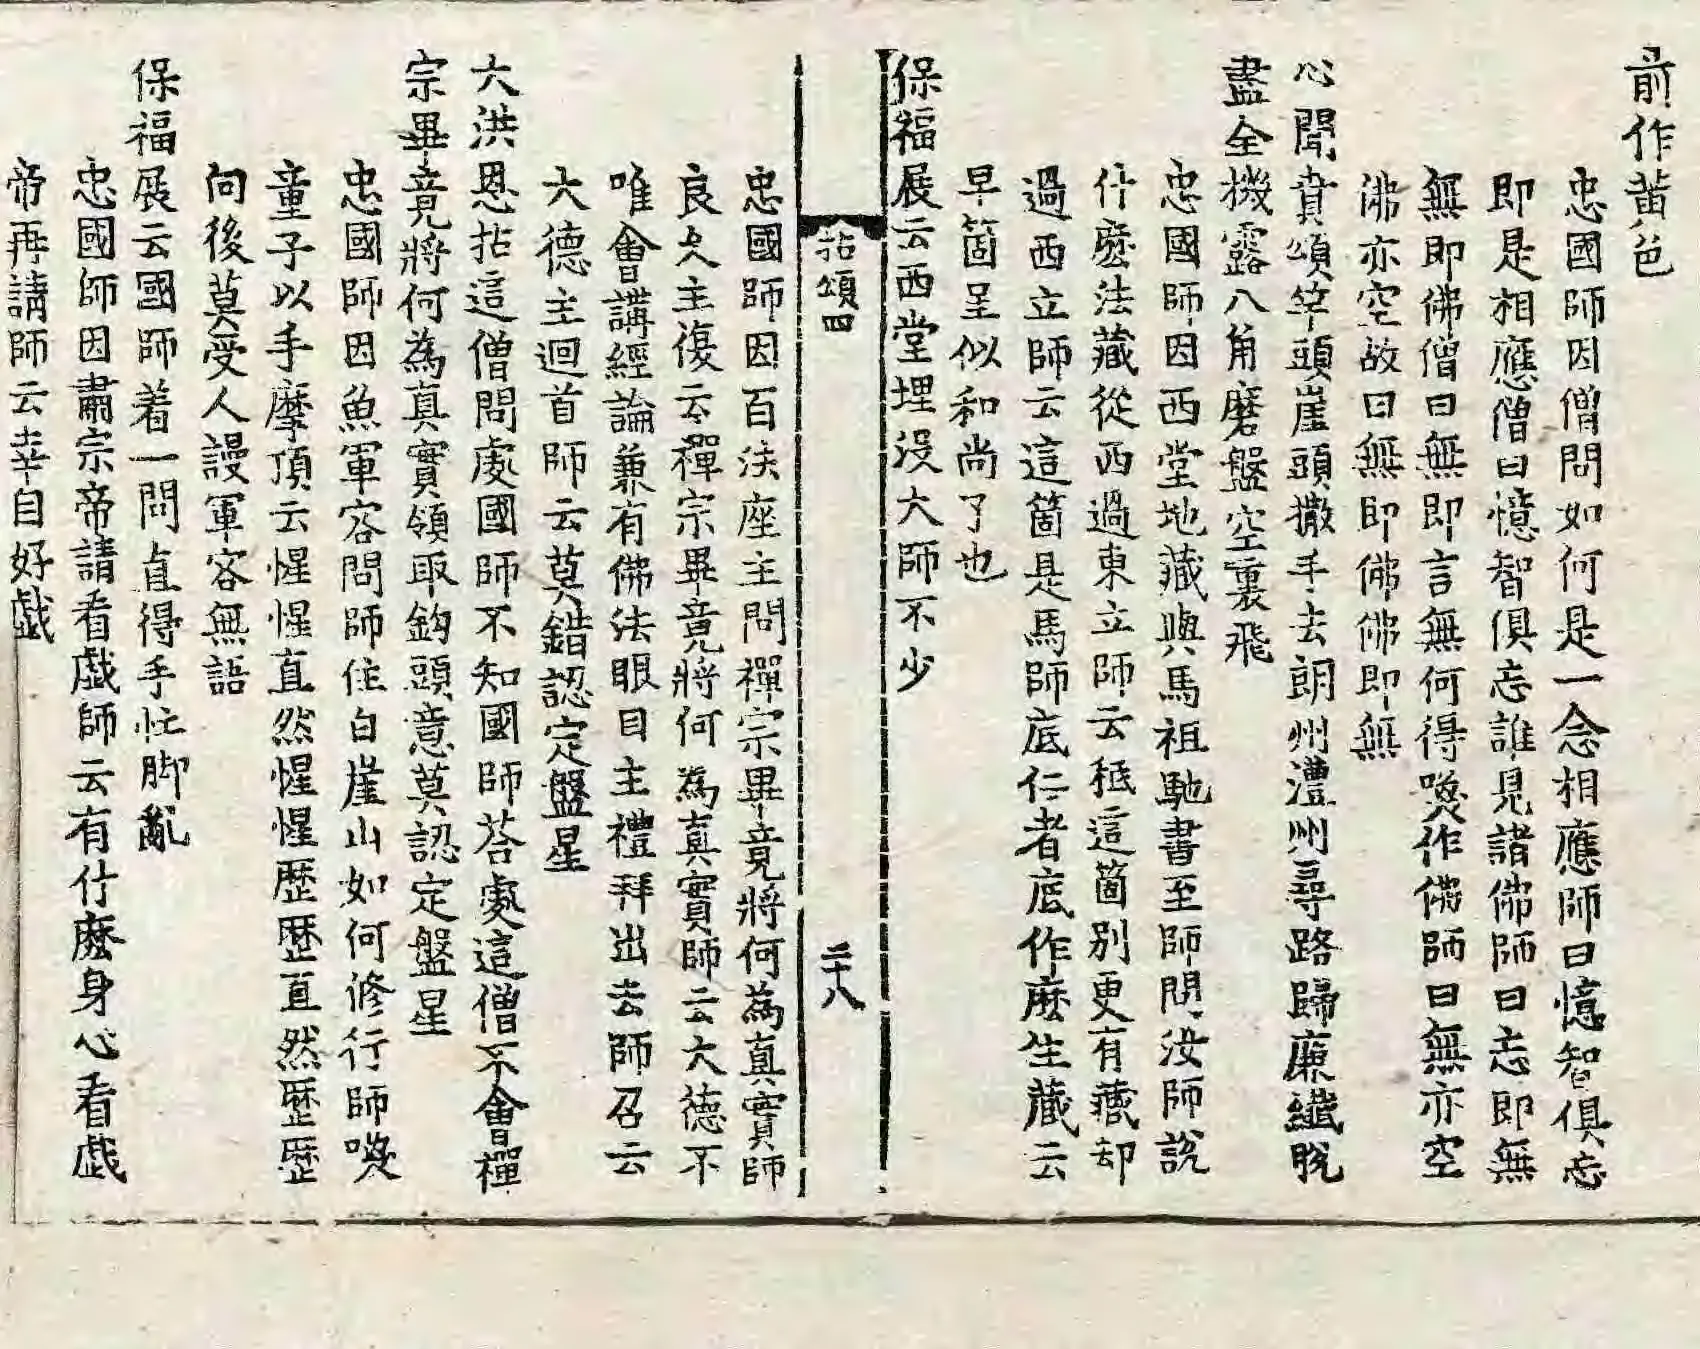 前作黄色
忠國師因僧問如何是一念相應師曰憶智俱忘
即是相應僧曰憶智俱忘誰見諸佛師曰忘即無
無即佛僧曰無即言無何得喚作佛師曰無亦空
佛亦空故曰無即佛佛即無
心聞賁頌竿頭崖頭撒手去朗州澧州尋路歸廉纖脫
盡全機露八角磨盤空裏飛
忠國師因西堂地藏與馬祖馳書至師問汝師說
什麽法藏從西過東立師云秪這箇別更有藏却
過西立師云這箇是馬師底仁者底作麽生藏云
早箇呈似和尚了也
保福展云西堂埋没大師不少
拈頌四 二十八
忠國師因百法座主問禪宗畢竟將何為真實師
良久主復云禪宗畢竟將何為真實師云大德不
唯會講經論兼有佛法眼目主禮拜出去師召云
大德主迴首師云莫錯認定盤星
大洪恩拈這僧問處國師不知國師荅處這僧不會禪
宗畢竟將何為真實領取鈎頭意莫認定盤星
忠國師因魚軍容問師住白崖山如何修行師喚
童子以手摩頂云惺惺直然惺惺歷歷直然歷歷
向後莫受人謾軍容無語
保福展云國師着一問直得手忙脚亂
忠國師因肅宗帝請看戯師云有什麽身心看戯
帝再請師云幸自好戯